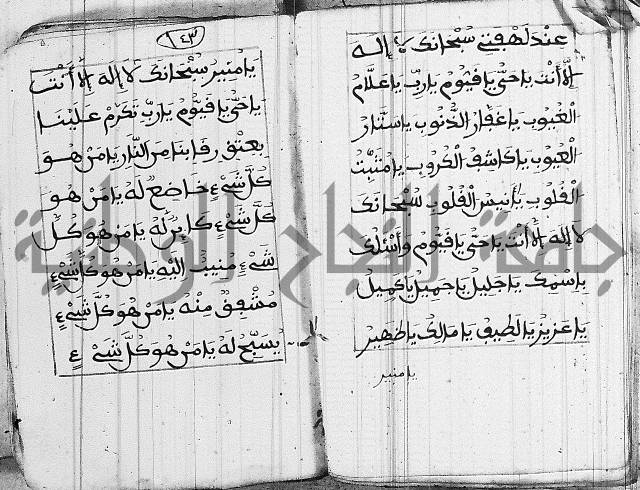 عند لهفتي سبحانك لا إله
إلا أنت يا حي يا قيوم يا رب يا علام
الغيوب يا غفار الذنوب يا ستار
العيوب يا كاشف الكروب يا مثبت
القلوب يا أنيس القلوب سبحانك
لا إله إلا أنت يا حي يا قيوم وأسئلك
بإسمك يا جليل يا جميل يا كميل
يا عزيز يا لطيف يا مالك يا ظهير
يا منير
١٤٣
يا منير سبحانك لا إله إلا أنت
يا حي يا قيوم يا رب تكرم علينا
بعتق رقابنا من النار يا من هو
كل شيء خاضع له يا من هو
كل شيء كائن له يا من هو كل
شيء منيب إليه يا من هو كل شيء
مشفق منه يا من هو كل شيء
يسبح له يا من هو كل شيء
جامعة النجاح الوطنية